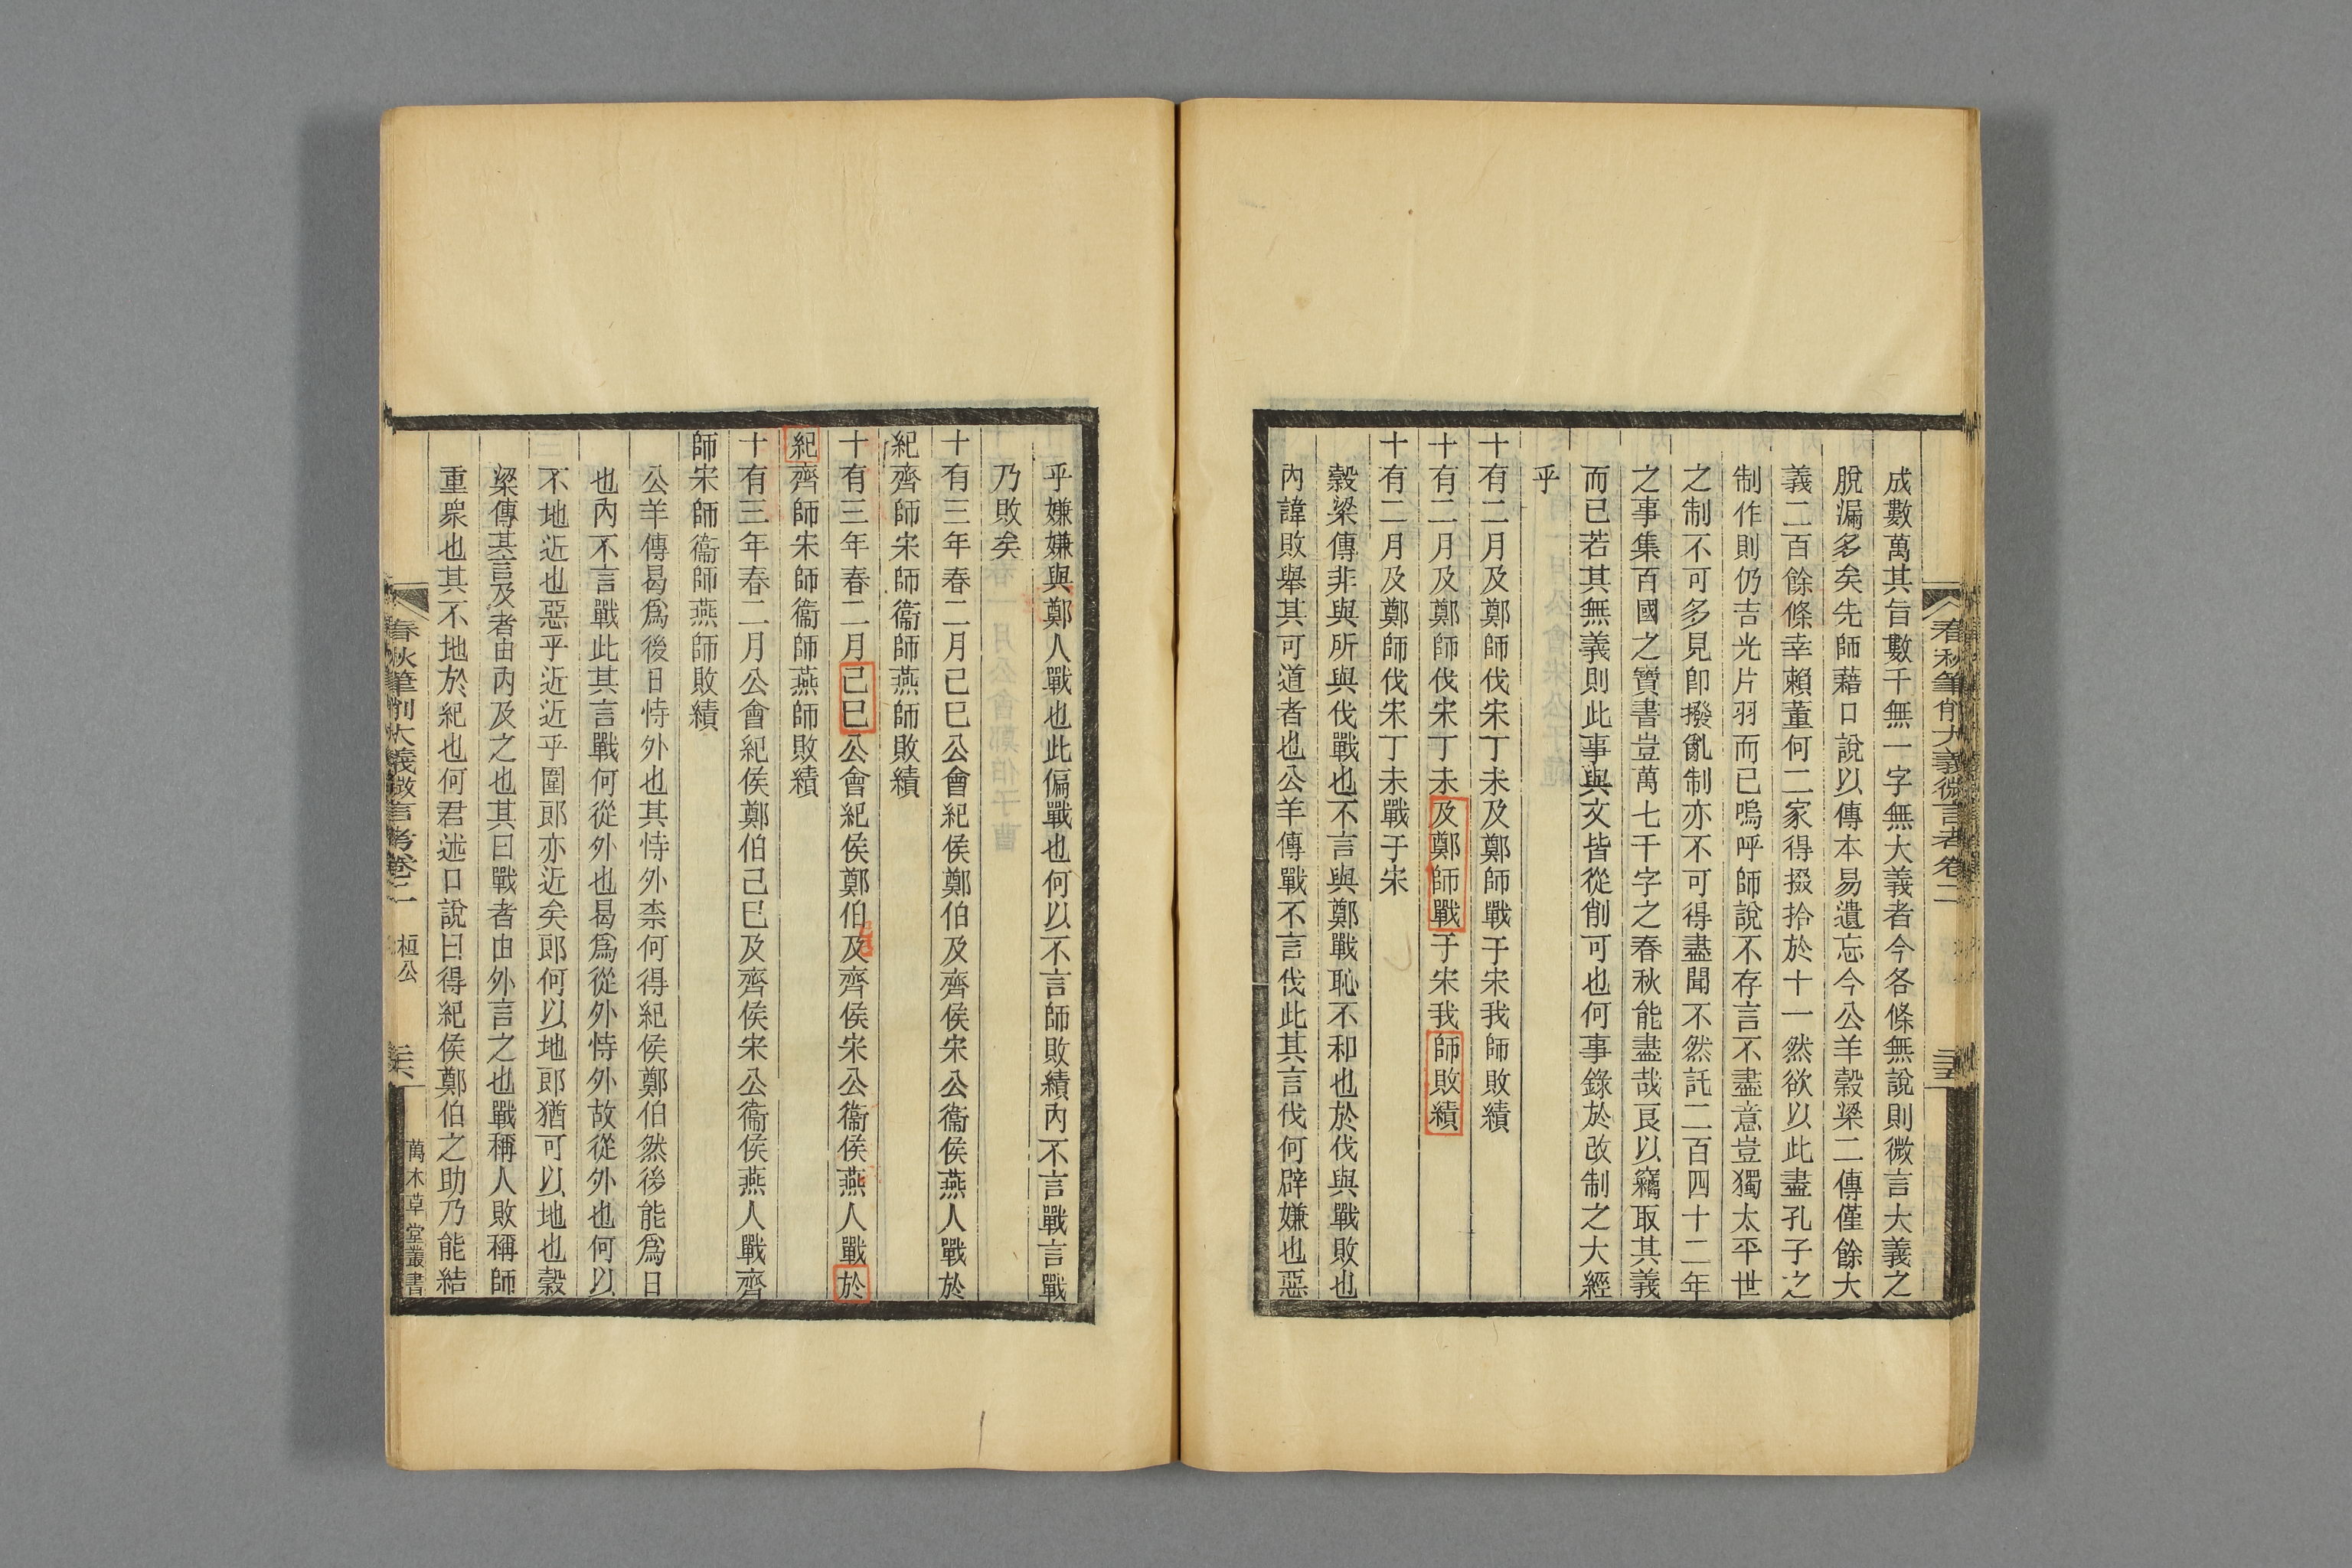 春秋筆削大義微言考卷二
三十五
成數萬其旨數千無一字無大義者今各條無說則微言大義之
脫漏多矣先師藉口說以傳本易遺忘今公羊穀梁二傳僅餘大
義二百餘條幸賴董何二家得掇拾於十一然欲以此盡孔子之
制作則仍吉光片羽而已嗚呼師說不存言不盡意豈獨太平世
之制不可多見卽撥亂制亦不可得盡聞不然託二百四十二年
之事集百國之寶書豈萬七千字之春秋能盡哉良以竊取其義
而已若其無義則此事與文皆從削可也何事錄於改制之大經
乎
十有二月及鄭師伐宋丁未及鄭師戰于宋我師敗績
十有二月及鄭師伐宋丁未及鄭師戰于宋我師敗績
十有二月及鄭師伐宋丁未戰于宋
穀梁傳非與所與伐戰也不言與鄭戰恥不和也於伐與戰敗也
內諱敗舉其可道者也公羊傳戰不言伐此其言伐何辟嫌也惡
乎嫌嫌與鄭人戰也此偏戰也何以不言師敗績內不言戰言戰
乃敗矣
十有三年春二月己巳公會紀侯鄭伯及齊侯宋公衞侯燕人戰於
紀齊師宋師衞師燕師敗績
十有三年春二月己巳公會紀侯鄭伯及齊侯宋公衞侯燕人戰於
紀齊師宋師衞師燕師敗績
十有三年春二月公會紀侯鄭伯己巳及齊侯宋公衞侯燕人戰齊
師宋師衞師燕師敗績
公羊傳曷爲後日恃外也其恃外柰何得紀侯鄭伯然後能爲日
也內不言戰此其言戰何從外也曷爲從外恃外故從外也何以
不地近也惡乎近近乎圍郎亦近矣郎何以地郎猶可以地也穀
梁傳其言及者由內及之也其曰戰者由外言之也戰稱人敗稱師
重眾也其不地於紀也何君述口說曰得紀侯鄭伯之助乃能結
春秋筆削大義微言考卷二 桓公
三十六
萬木草堂叢書